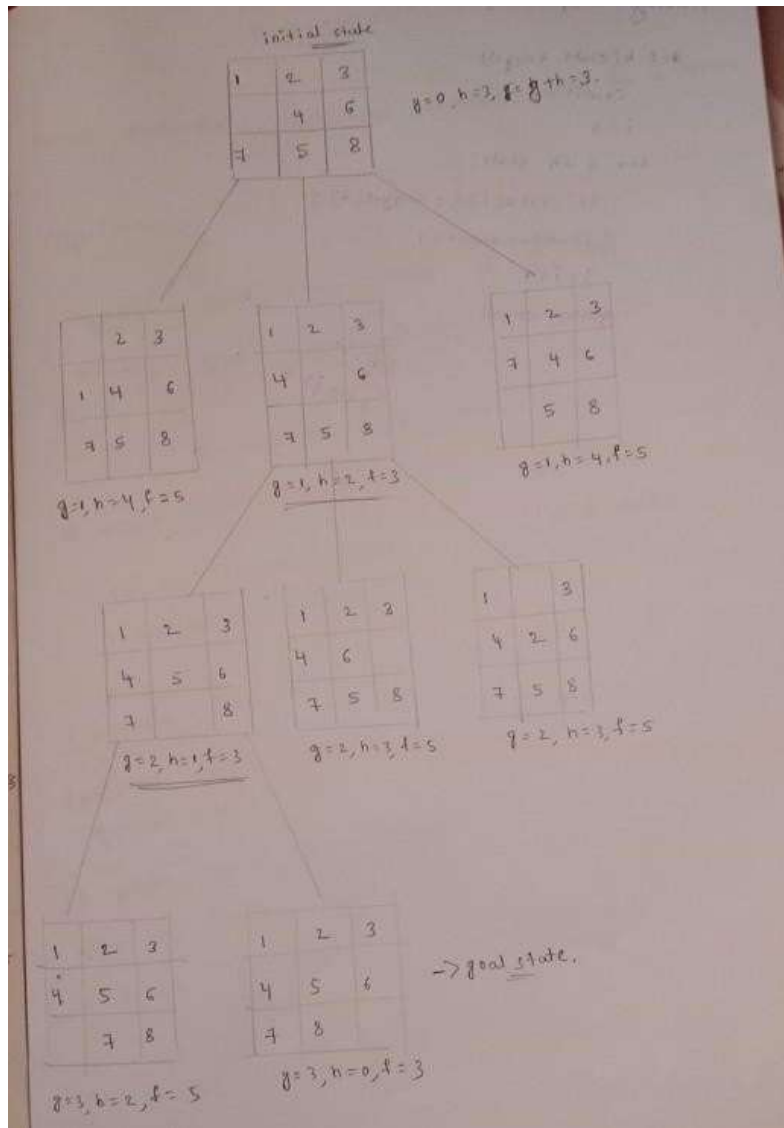 initial state
1 2 3
4 6
7 5 8
g=0, h=3, f=g+h=3.
2 3
1 4 6
7 5 8
g=1, h=4, f=5
1 2 3
4 6
7 5 8
g=1, h=2, f=3
1 2 3
7 4 6
5 8
g=1, h=4, f=5
1 2 3
4 5 6
7 8
g=2, h=1, f=3
1 2 3
4 6
7 5 8
g=2, h=3, f=5
1 3
4 2 6
7 5 8
g=2, h=3, f=5
1 2 3
4 5 6
7 8
g=3, h=2, f=5
1 2 3
4 5 6
7 8
g=3, h=0, f=3
-> goal state.